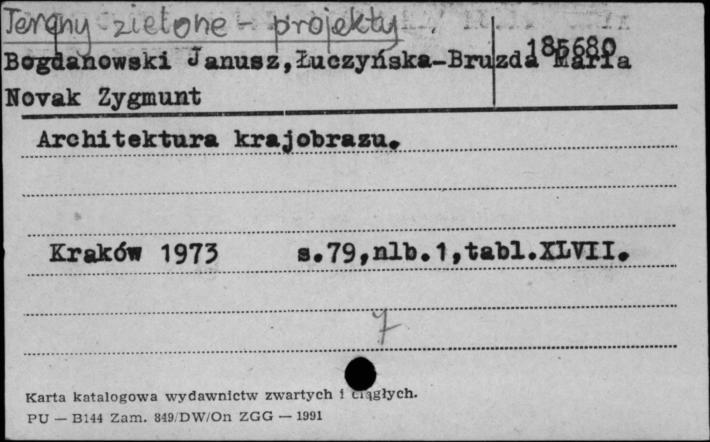 Tereny zielone - projekty.
Bogdanowski Janusz, Łuczyńska-Bruzda Maria 185680
Novak Zygmunt
Architektura krajobrazu.
Kraków 1973 s.79,nlb.1,tabl.XLVII.
7
Karta katalogowa wydawnictw zwartych i ciągłych.
PU — B144 Zam. 849/DW/On ZGG — 1991